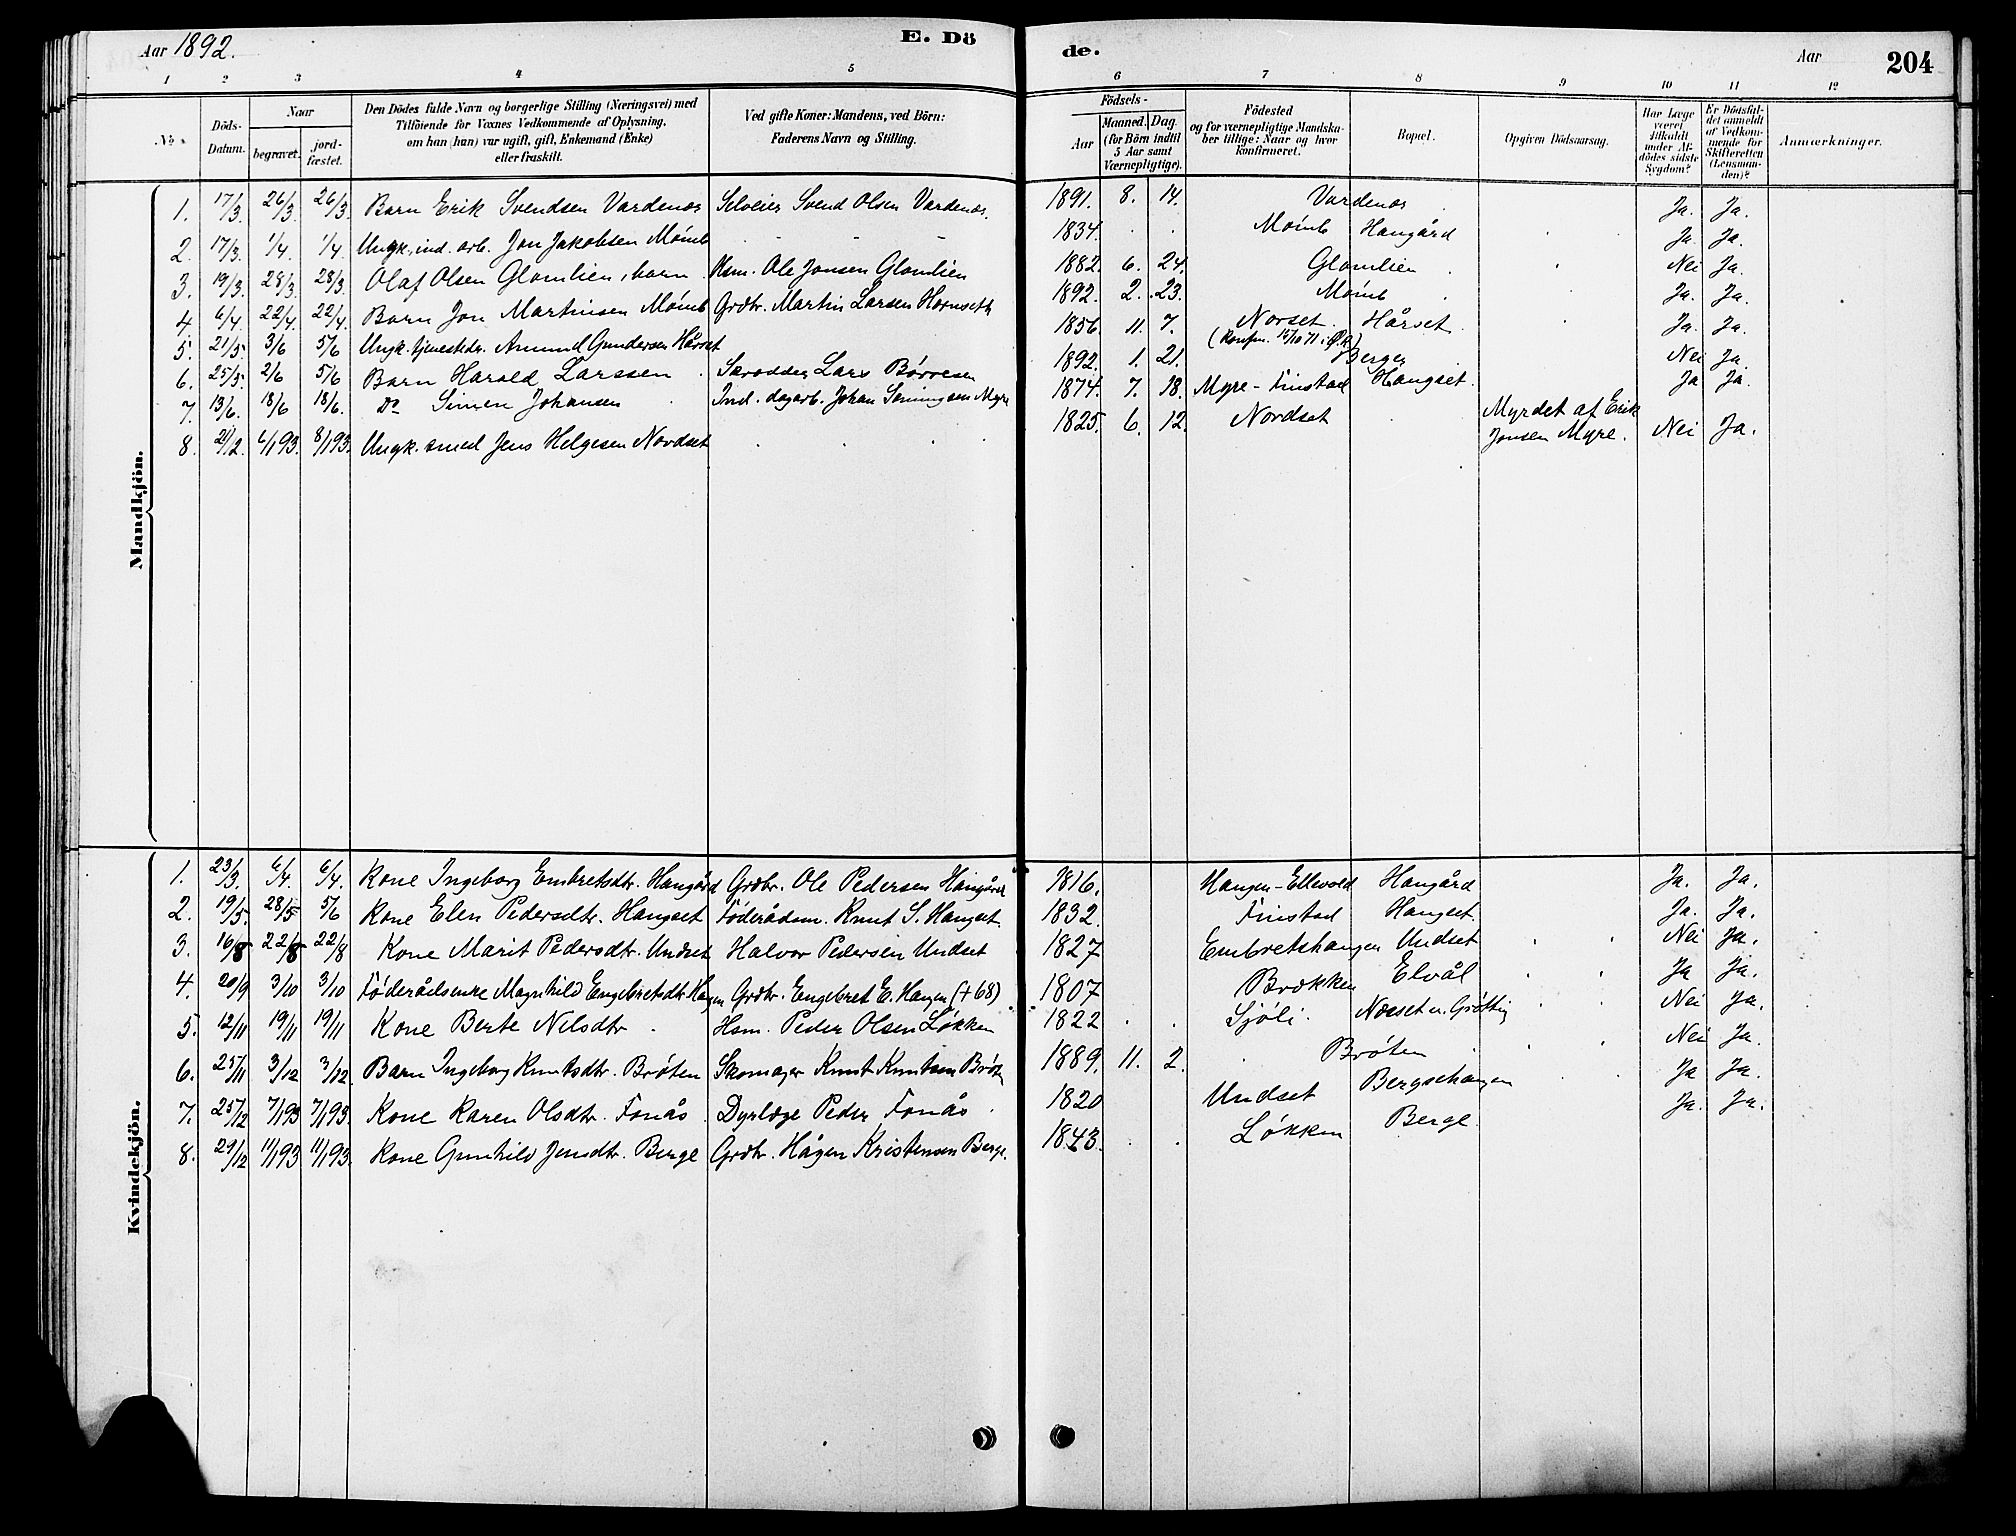 Aar 1892.
E. Dö
de.
Aar
204
1 2 3 4 5 6 7 8 9 10 11 12
No.
Döds-Datum.
Naar
begravet.
jordfæstet.
Den Dödes fulde Navn og borgerlige Stilling (Næringsvei) med
Tilföiende for Voxnes Vedkommende af Oplysning,
om han (hun) var ugift, gift, Enkemand (Enke)
eller fraskilt.
Ved gifte Koner: Mandens, ved Börn:
Faderens Navn og Stilling.
Födsels-
Aar
Maaned. Dag.
(for Börn indtil
5 Aar samt
Værnepligtige).
Födested
og for værnepligtige Mandska-
ber tillige: Naar og hvor
konfirmeret.
Bopæl.
Opgiven Dödsaarsag.
Har Læge
været
tilkaldt
under Af-
dödes sidste
Sygdom?
Er Dödsfal-
det anmeldt
af Vedkom-
mende for
Skifteretten
(Lensman-
den)?
Anmærkninger.
Mandkjön.
1. 17/3. 26/3. 26/3. Barn Erik Svendsen Vardenæs Selveier Svend Olsen Vardenæs. 1891. 8. 14. Vardenæs Ja. Ja.
2. 17/3. 1/4. 1/4. Ungk. ind. arb. Jon Jakobsen Mømb 1834. Mømb Haugård Ja. Ja.
3. 19/3. 28/3. 28/3. Olaf Olsen Glomlien, barn Hsm. Ole Jonsen Glomlien 1882. 6. 24. Glomlien Nei Ja.
4. 6/4. 22/4. 22/4. Barn Jon Martinsen Mømb Grdbr. Martin Larsen Hornseth 1892. 2. 23. Mømb Ja. Ja.
5. 21/5. 3/6 5/6 Ungk. tjenestedr. Amund Gundersen Hårset 1856. 11. 7. Norset Hårset Ja. Ja.
(Konfm. 15/10 71 i )
6. 25/5. 2/6 5/6 Barn Harold Larssen Lars Børresen 1892. 1. 21. Berger Nei Ja.
7. 13/6. 18/6 18/6. Do Simen Johansen Ind. dagarb. Johan Simingsen Myre 1874. 7. 18. Myre-Finstad Haugset Ja Ja.
8. 21/12. 6/1 93. 8/1 93. Ungk. smed Jens Helgesen Nordset 1825. 6. 12. Nordset Myrdet af Erik
Jonsen Myre. Nei Ja.
Kvindekjön.
1. 23/3. 6/4. 6/4. Kone Ingeborg Embretsdtr. Haugård Grdbr. Ole Pedersen Haugård 1816. Haugen-Ellevold Haugård Ja. Ja.
2. 19/5. 28/5 5/6 Kone Elen Pedersdtr. Haugset Føderådsm. Knut S. Haugset. 1832. Finstad Haugset. Ja. Ja.
3. 16/8 22/8 22/8 Kone Marit Pedersdtr. Undset Halvor Pedersen Undset 1827 Embretshaugen Undset Nei Ja.
4. 20/9 3/10 3/10 Føderådsenke Magnhild Engebretsdtr. Haugen Grdbr. Engebret E. Haugen (+ 68) 1807 Brækken Elvål Ja Ja.
5. 12/11 19/11 19/11 Kone Berte Nilsdtr. Hsm. Peder Olsen Løkken 1822 Sjøli. Norset u. Grøtting Nei Ja.
6. 25/11 3/12 3/12. Barn Ingeborg Knutsdtr. Brøten Skomager Knut Knutsen Brøten 1889. 11. 2. Brøten Nei Ja.
7. 25/12 7/1 93 7/1 93. Kone Karen Olsdtr. Fonås Dyrlæge Peder Fonås 1820 Undset Bergsehaugen Ja Ja.
8. 29/12 11/1 93 11/1 93. Kone Gunhild Jensdtr. Berge Grdbr. Hågen Kristensen Berge. 1843. Løkken Berge Ja. Ja.